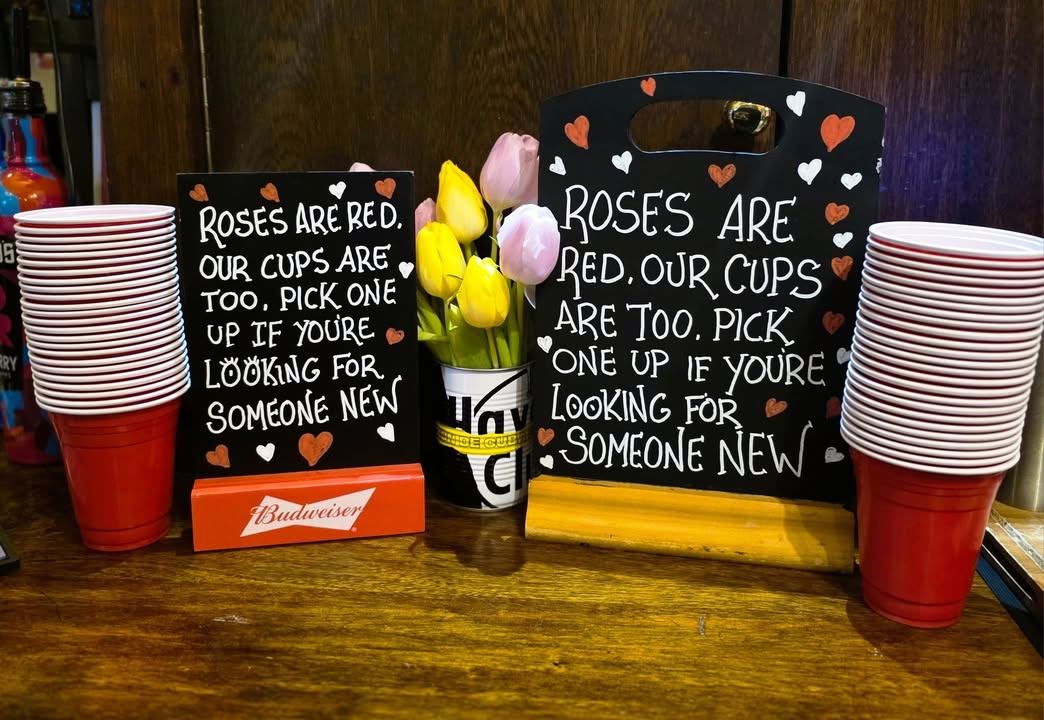 ROSES ARE RED.
OUR CUPS ARE
TOO. PICK ONE
UP IF YOU'RE
LOOKING FOR
SOMEONE NEW
Budweiser
ROSES ARE
RED. OUR CUPS
ARE TOO. PICK
ONE UP IF YOU'RE
LOOKING FOR
SOMEONE NEW